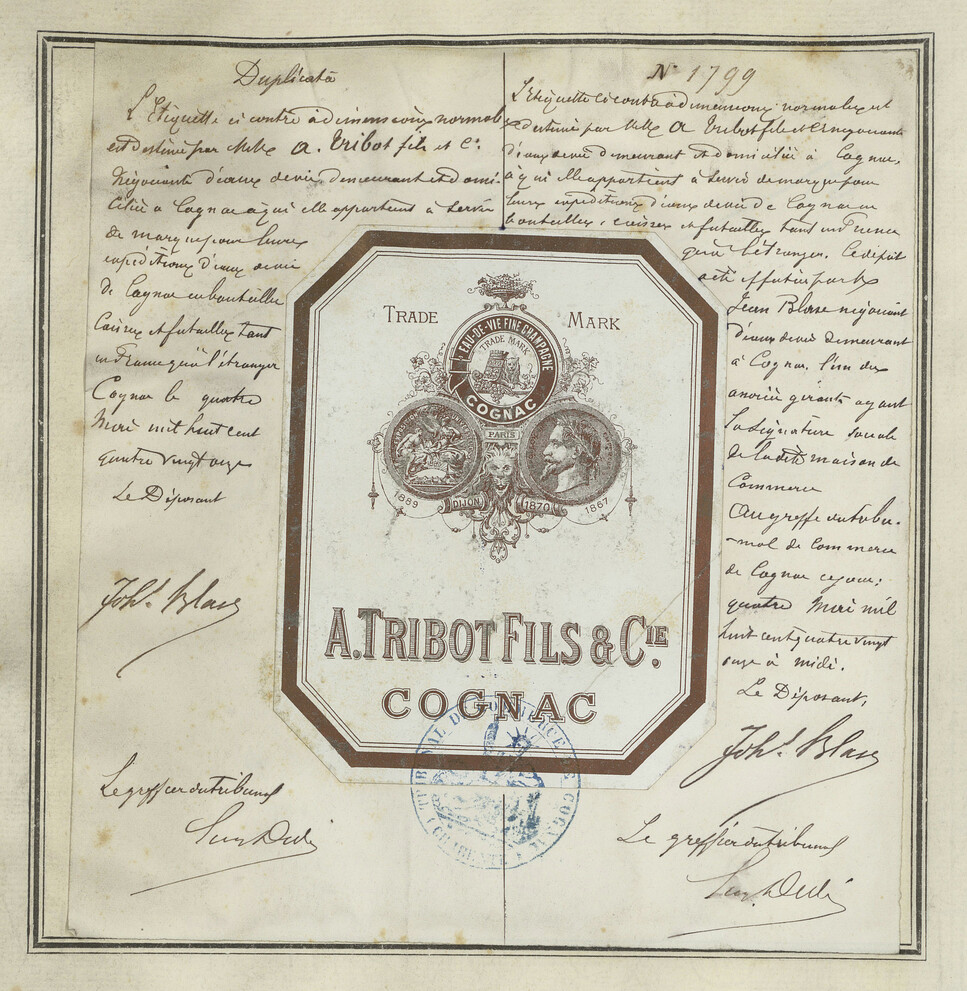 Duplicata
L'Etiquette ci contre à dimensions normales
est destiné par MMrs A. Tribot fils et Cie
Négociants d'eaux de vie demeurant et domi-
cilié à Cognac à qui elle appartient à servir
de marque pour leurs
expéditions d'eaux de vie
de Cognac en bouteilles
Caisses et futailles tant
en France qu'à l'étranger
Cognac le quatre
Mars mil huit cent
quatre vingt onze
Le Déposant
Le greffier du tribunal
N° 1799
L'Etiquette ci contre à dimensions normales est
destiné par MMrs A Tribot fils et Cie négociants
d'eaux de vie demeurant et domicilié à Cognac,
à qui elle appartient à servir de marque pour
leurs expéditions d'eaux de vie de Cognac en
bouteilles, caisses et futailles tant en France
qu'à l'étranger. Ce dépôt
a été effectué par
Jean Blase négociant
d'eaux de vie demeurant
à Cognac, l'un des
associés gérants ayant
la signature sociale
de la dite maison de
Commerce
Au greffe du tribu-
-nal de Commerce
de Cognac ce jour;
quatre Mars mil
huit cent quatre vingt
onze à midi.
Le Déposant,
Le greffier du tribunal
TRADE MARK
EAU-DE-VIE FINE CHAMPAGNE
TRADE MARK
COGNAC
PARIS
1889 DIJON 1870 1867
A. TRIBOT FILS & CIE.
COGNAC
TRIBUNAL DE COMMERCE DE COGNAC
(CHARENTE)